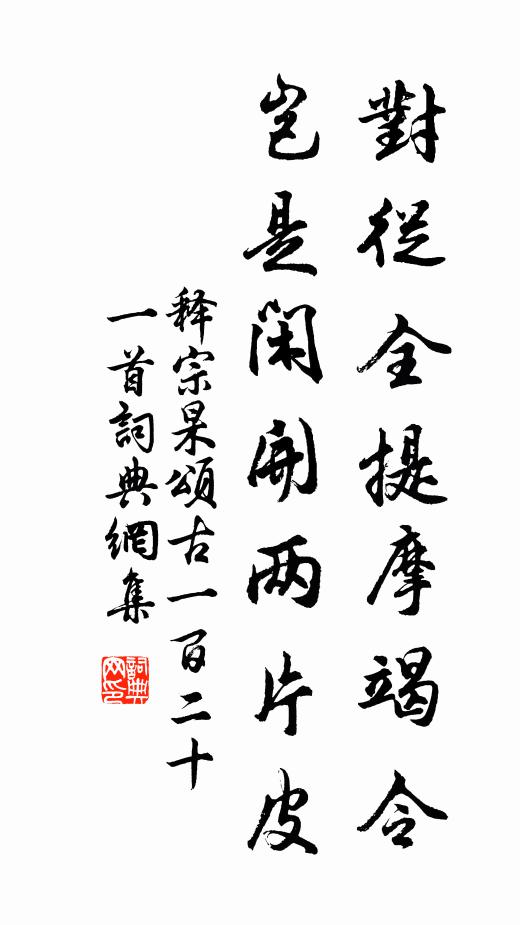 對從全提摩竭令
豈是閑開两片皮
释宗杲頌古一百二十
一首詞典網集
詞典网印